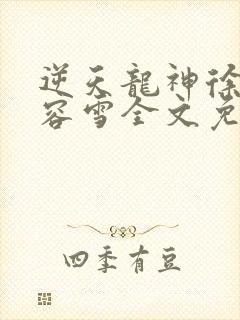 逆天龍神徐
容雪全文免
四季有豆